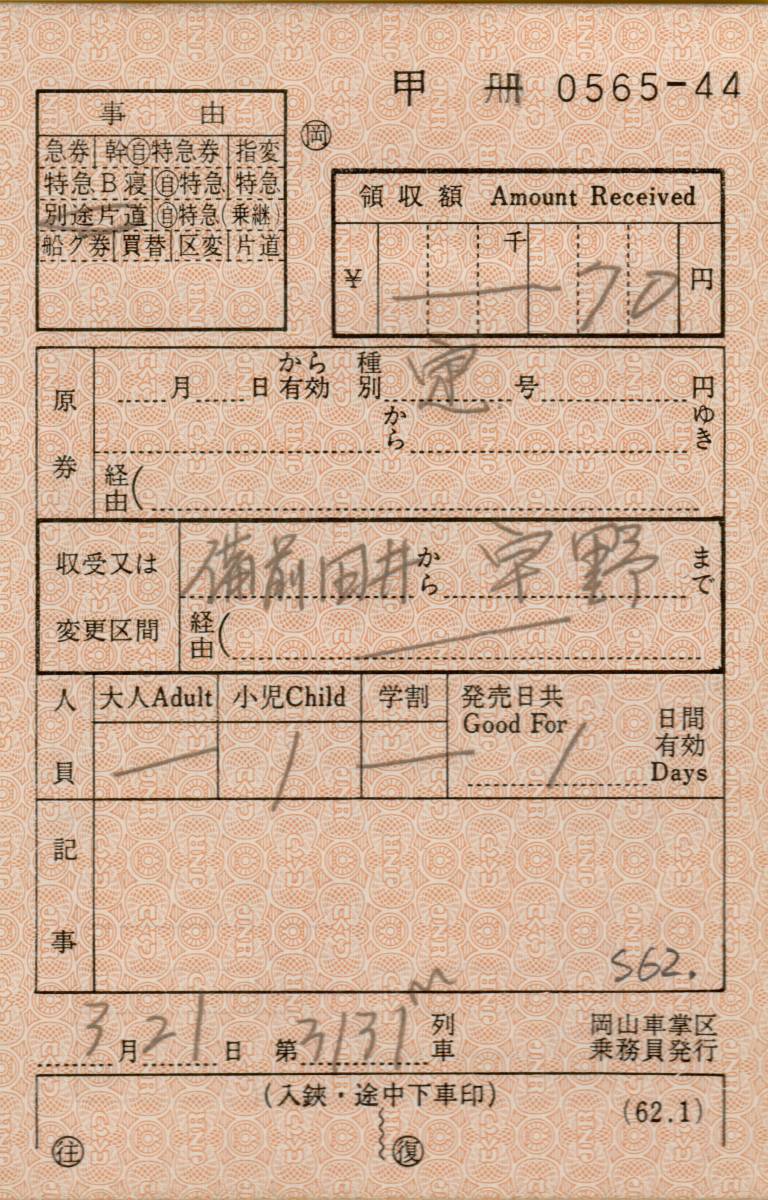 甲 冊 0565-44
事由
㊞岡
急券 幹㊂特急券 指変
特急B寝 自特急 特急
別途片道 自特急(乗継)
船グ券 買替 区変 片道
領収額 Amount Received
千
¥ 70 円
原券
月 日 から有効 種別 定 号 円
から ゆき
経由(
収受又は変更区間
備前田井 から 宇野 まで
経由(
人員
大人Adult 小児Child 学割 発売日共 日間有効
Good For Days
1 1
記事
S62.
3月21日 第3131M列車 岡山車掌区乗務員発行
(入鋏・途中下車印)
(62.1)
往 復